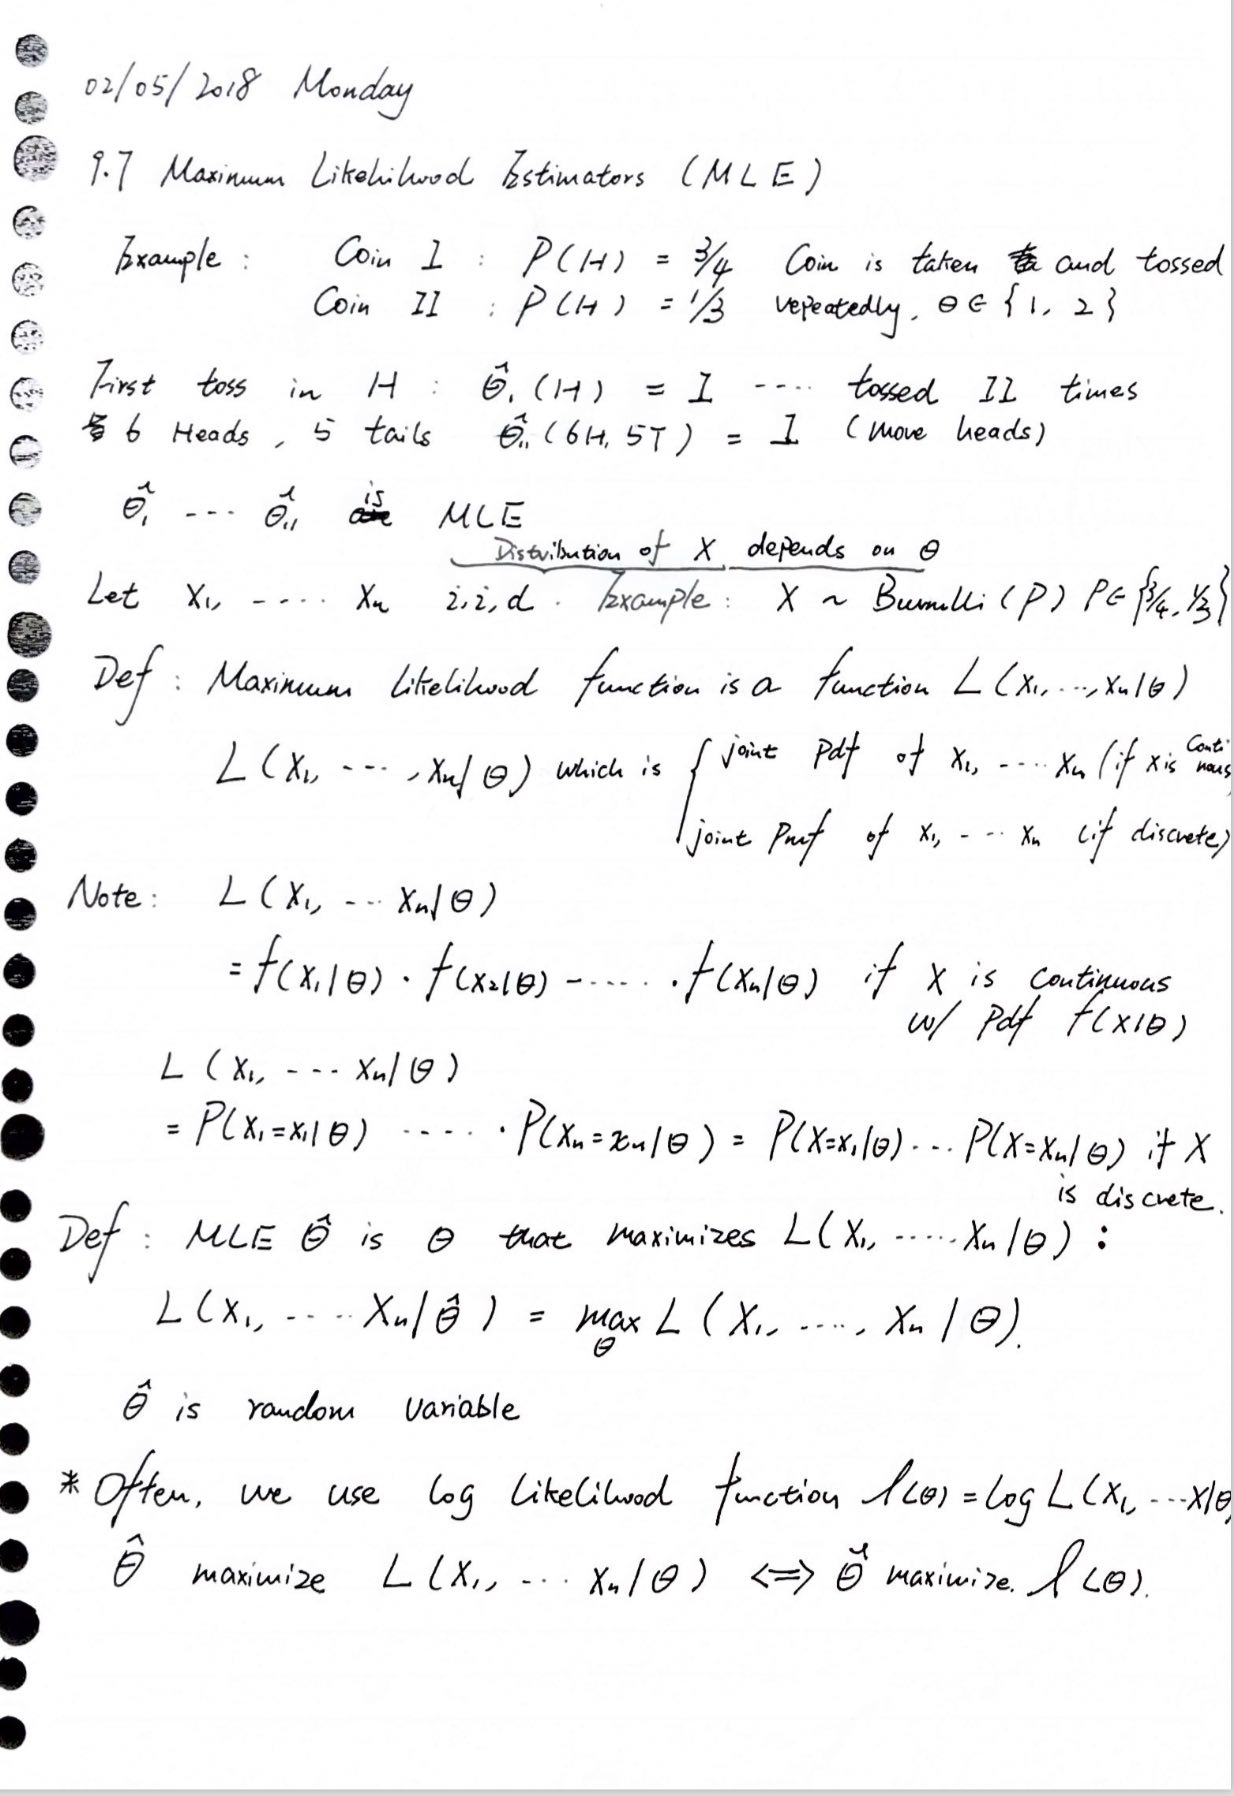 02/05/2018 Monday
9.7 Maximum Likelihood Estimators (MLE)
Example : Coin I : P(H) = 3/4 Coin is taken and tossed
Coin II : P(H) = 1/3 repeatedly, θ ∈ {1, 2}
First toss in H : θ̂₁(H) = I ---- tossed II times
6 Heads, 5 tails θ̂₁₁(6H, 5T) = I (more heads)
θ̂₁ --- θ̂₁₁ is MLE
Distribution of X depends on θ
Let X₁, ---- Xn i,i,d. Example: X ~ Bernulli (P) P∈{3/4, 1/3}
Def : Maximum likelihood function is a function L(X₁, ..., Xn|θ)
L(X₁, --- , Xn|θ) which is { joint Pdf of X₁, ---- Xn (if X is Continous)
joint Pmf of X₁, --- Xn (if discrete)
Note: L(X₁, --- Xn|θ)
= f(X₁|θ) · f(X₂|θ) ------ · f(Xn|θ) if X is continuous
w/ Pdf f(X|θ)
L(X₁, --- Xn|θ)
= P(X₁=x₁|θ) ----- · P(Xn=xn|θ) = P(X=x₁|θ)... P(X=Xn|θ) if X
is discrete.
Def : MLE θ̂ is θ that maximizes L(X₁, ----- Xn|θ) :
L(X₁, ---- Xn|θ̂) = max L(X₁, ----, Xn|θ).
θ
θ̂ is random variable
* Often, we use log likelihood function l(θ) = log L(X₁, ---X|θ)
θ̂ maximize L(X₁, --- Xn|θ) <=> θ̂ maximize. l(θ).